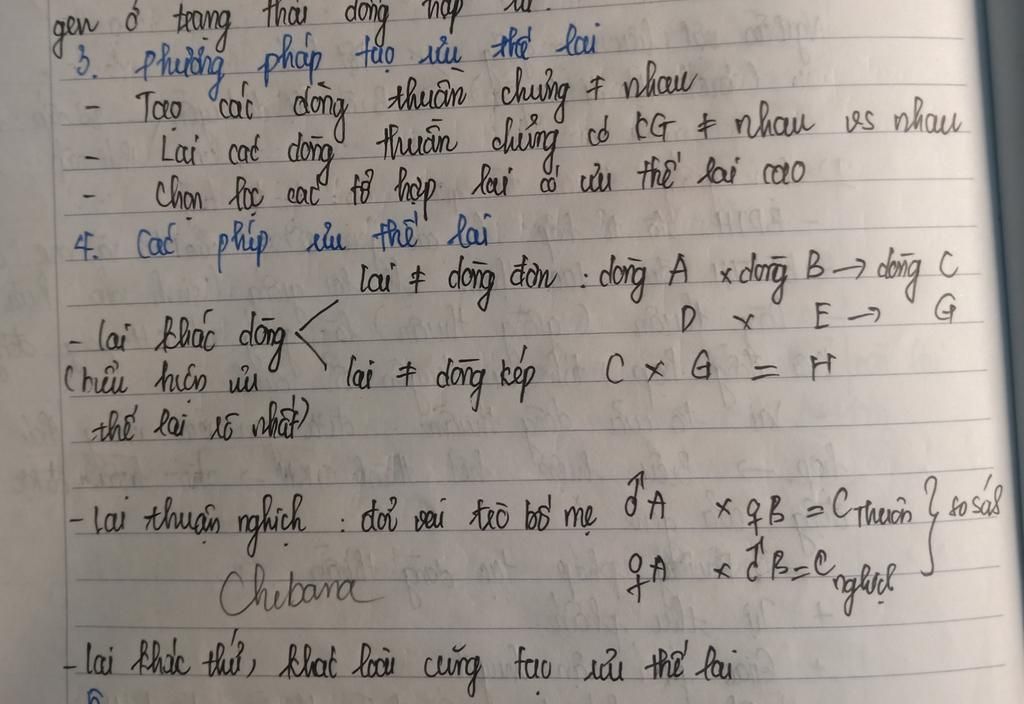 gen ở trạng thái đồng hợp
3. Phương pháp tạo ưu thế lai
- Tạo các dòng thuần chủng ≠ nhau
- Lai các dòng thuần chủng có KG ≠ nhau vs nhau
- Chọn lọc các tổ hợp lai có ưu thế lai cao
4. Các phép ưu thế lai
lai ≠ dòng đơn : dòng A × dòng B → dòng C
- lai khác dòng D × E → G
(hiểu hiện ưu lai ≠ dòng kép C × G = H
thế lai rõ nhất)
- Lai thuận nghịch : đổi vai trò bố mẹ ♂A × ♀B = C Thuận } so sá
Chebana ♀A × ♂B = C nghịch
- lai khác thứ, khác loài cũng tạo ưu thế lai